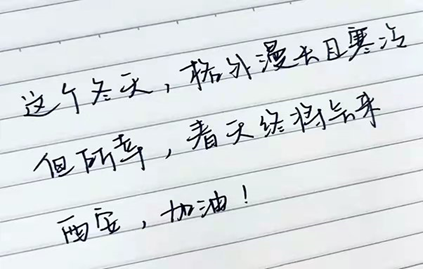 这个冬天，格外漫长且寒冷
但所幸，春天终将会来
西安，加油！